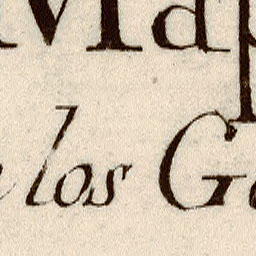 Map
los G